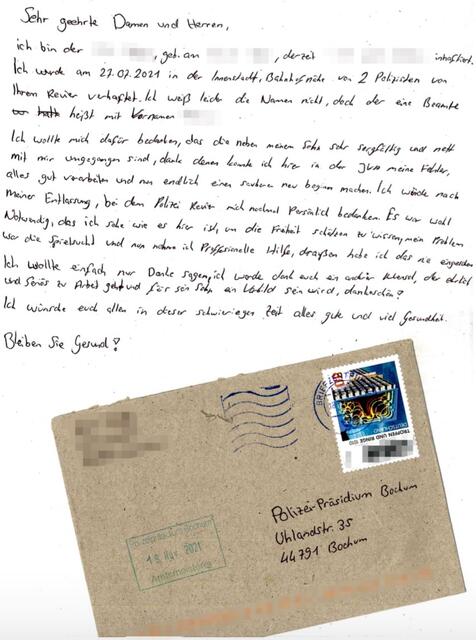 Sehr geehrte Damen und Herren,
ich bin der geb. am , derzeit inhaftiert.
Ich wurde am 27.07.2021 in der Innenstadt, Bahnhofnähe von 2 Polizisten von
Ihrem Revier verhaftet. Ich weiß leider die Namen nicht, doch der eine Beamte
heißt mit Vornamen
Ich wollte mich dafür bedanken, das die neben meinem Sohn sehr sorgfältig und nett
mit mir umgegangen sind, danke denen konnte ich hier in der JVA meine Fehler,
alles gut verarbeiten und nun endlich einen sauberen neu beginn machen. Ich würde nach
meiner Entlassung, bei dem Polizei Revier mich nochmal Persönlich bedanken. Es war wohl
Notwendig, das ich sehe wie es hier ist, um die Freiheit schätzen zu wissen, mein Problem
war die Spielsucht und nun nehme ich Professionelle Hilfe, draußen habe ich das nie eingesehen
Ich wollte einfach nur Danke sagen, ich werde dank euch ein anderer Mensch, der ehrlich
und Seriös zu Arbeit geht und für sein Sohn ein Vorbild sein wird, dankeschön!
Ich wünsche euch allen in dieser schwierigen Zeit alles gute und viel Gesundheit.
Bleiben Sie Gesund!
BRIEFZE
TROPFEN UND RINGE 1910
DEUTSCHLAND
Polizei-Präsidium Bochum
Uhlandstr. 35
44791 Bochum
Bochum
18. Nov. 2021